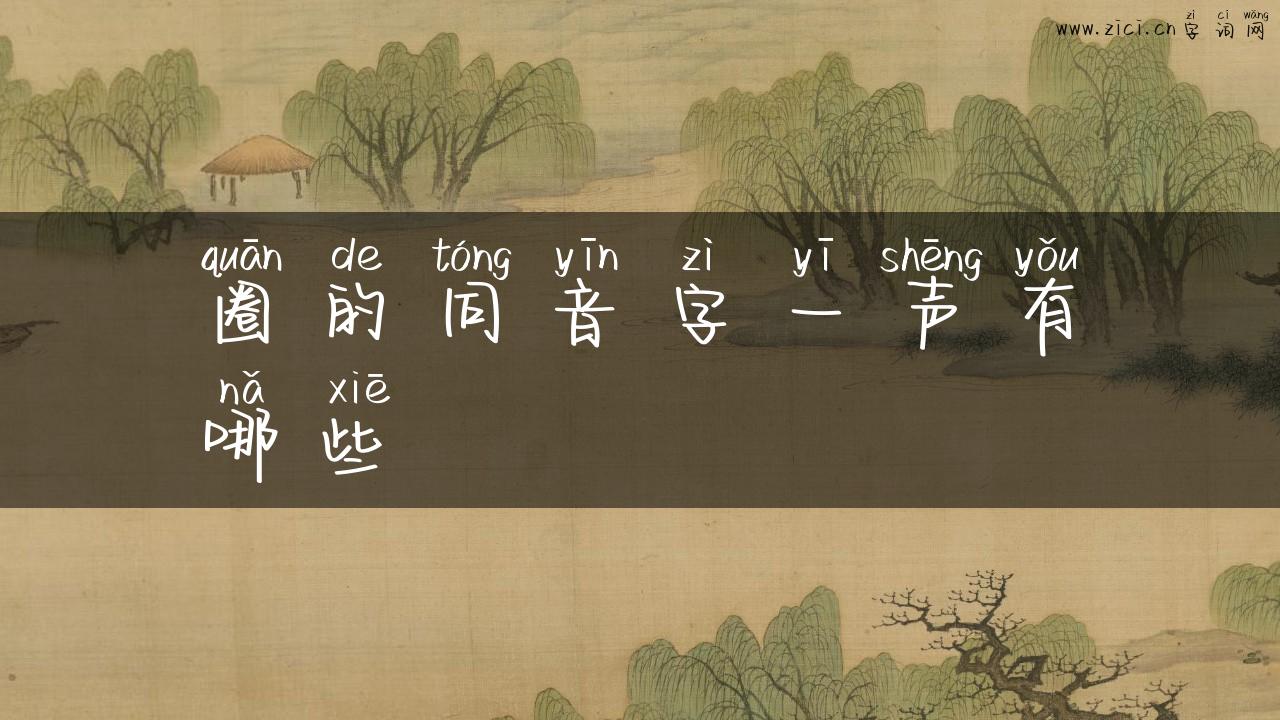 zì cí wǎng
www.zici.cn 字 词 网
quān de tóng yīn zì yī shēng yǒu
圈 的 同 音 字 一 声 有
nǎ xiē
哪 些